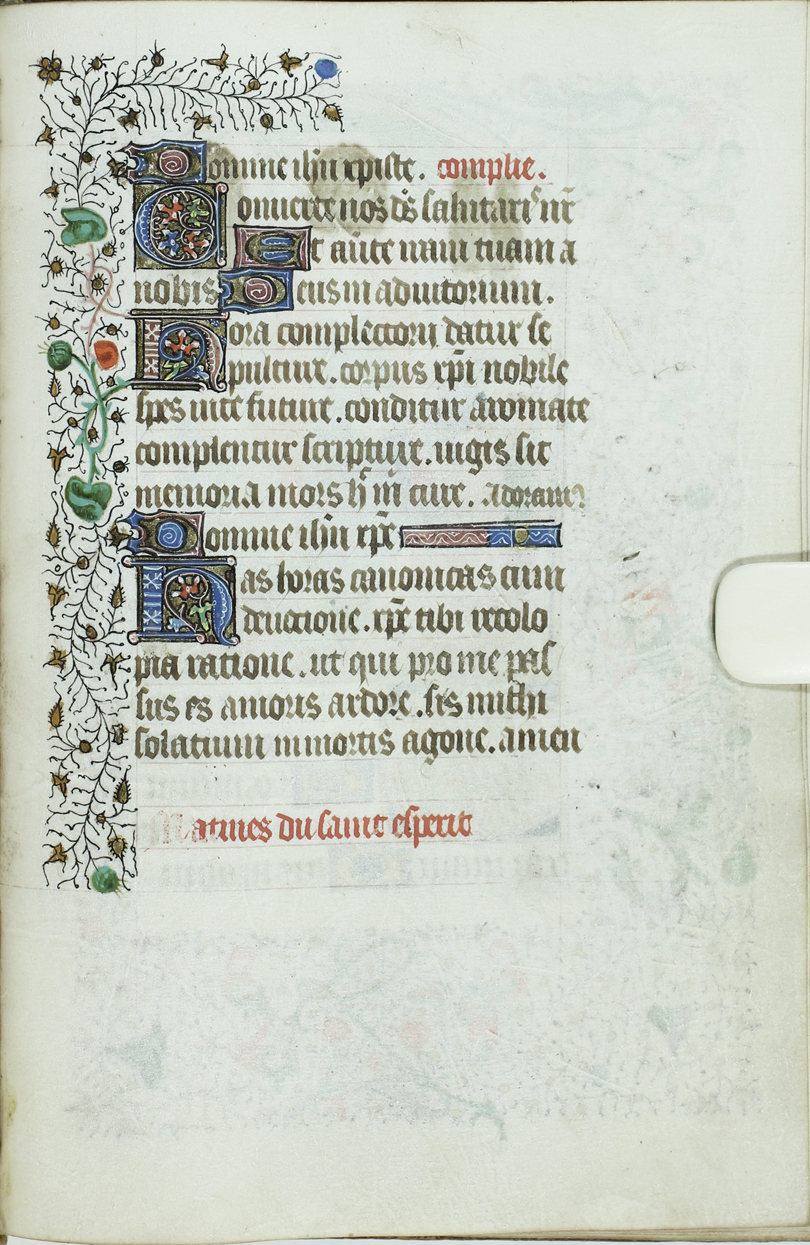 Domine ihu xpiste. complie.
Conuerte nos ds salutaris nr
Et auerte iram tuam a
nobis Deus in adiutorium.
Hora completorij datur se
pulture. corpus xpi nobile
spes uite future. conditur aromate
complentur scripture. iugis sit
memoria mors hec in cure. Adoramus
Domine ihu xpe
Has horas canonicas cum
deuocione. xpe tibi recolo
pia ratione. ut qui pro me pas
sus es amoris ardore. sis michi
solatium in mortis agone. amen
Matines du saint esperit